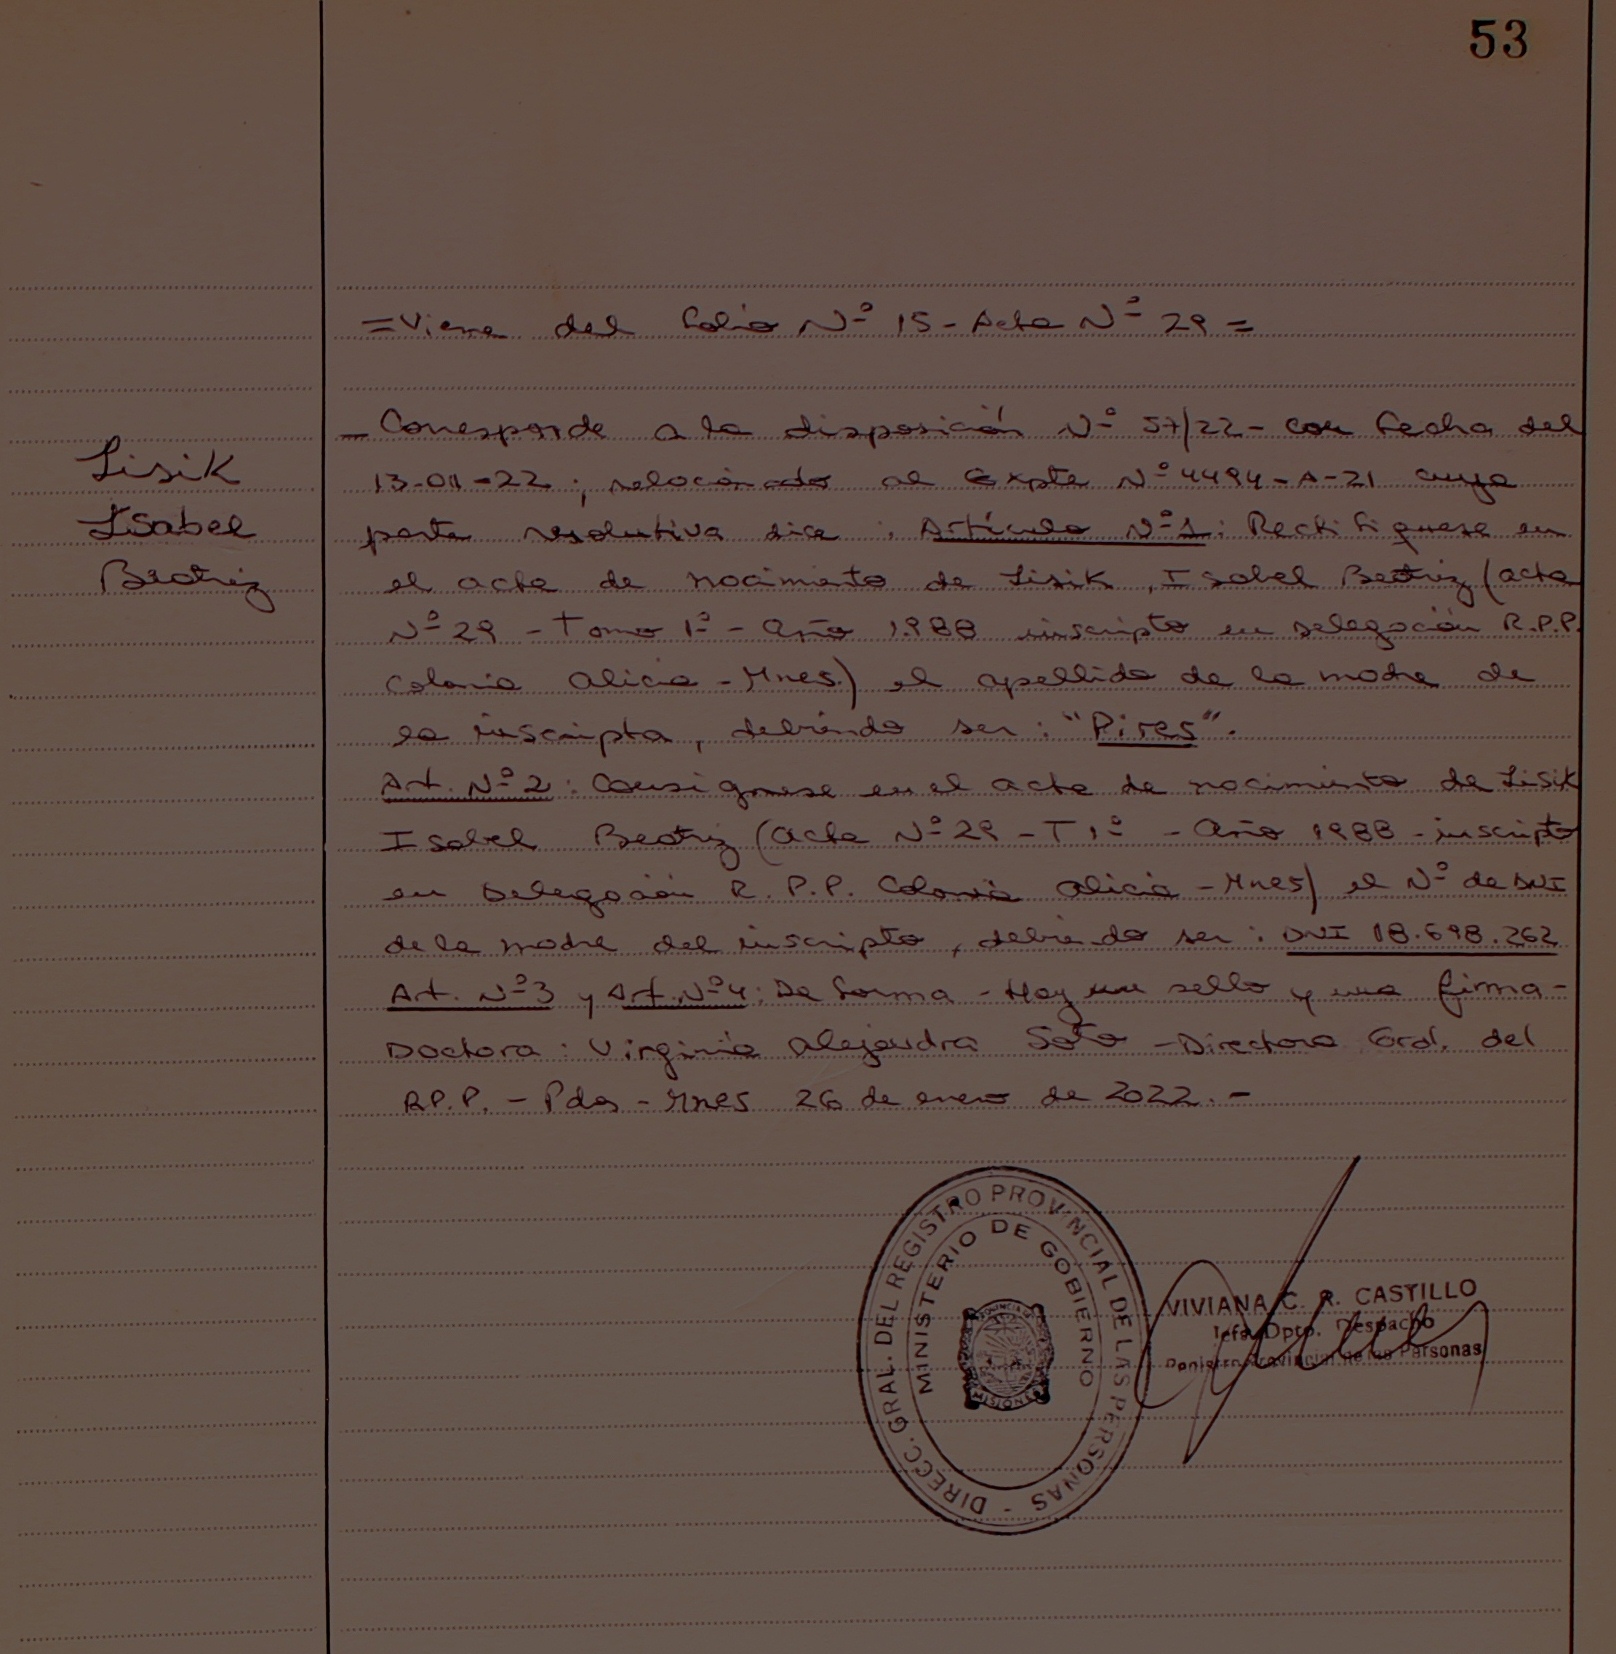 53
=Viene del folio Nº 15 - Acta Nº 29 =
Lisik
Isabel
Beatriz
- Corresponde a la disposición Nº 57/22 - con fecha del
13-01-22; relacionado al Expte Nº 4494-A-21 cuya
parte resolutiva dice: Artículo Nº 1: Rectifiquese en
el acta de nacimiento de Lisik, Isabel Beatriz (acta
Nº 29 - Tomo 1º - año 1988 inscripto en delegación R.P.P.
Colonia Alicia - Mnes.) el apellido de la madre de
la inscripta, debiendo ser: "Pires".
Art. Nº 2: Consignese en el acta de nacimiento de Lisik
Isabel Beatriz (acta Nº 29 - T 1º - año 1988 - inscripto
en Delegación R.P.P. Colonia Alicia - Mnes) el Nº de DNI
de la madre del inscripto, debiendo ser: DNI 18.698.262
Art. Nº 3 y Art. Nº 4: De forma - Hay un sello y una firma -
Doctora: Virginia Alejandra Soto - Directora Gral. del
R.P.P. - Pdas - Mnes 26 de enero de 2022. -
DIRECC. GRAL. DEL REGISTRO PROVINCIAL DE LAS PERSONAS -
MINISTERIO DE GOBIERNO
VIVIANA C. R. CASTILLO
Jefa Dpto. Despacho
Provincial de las Personas